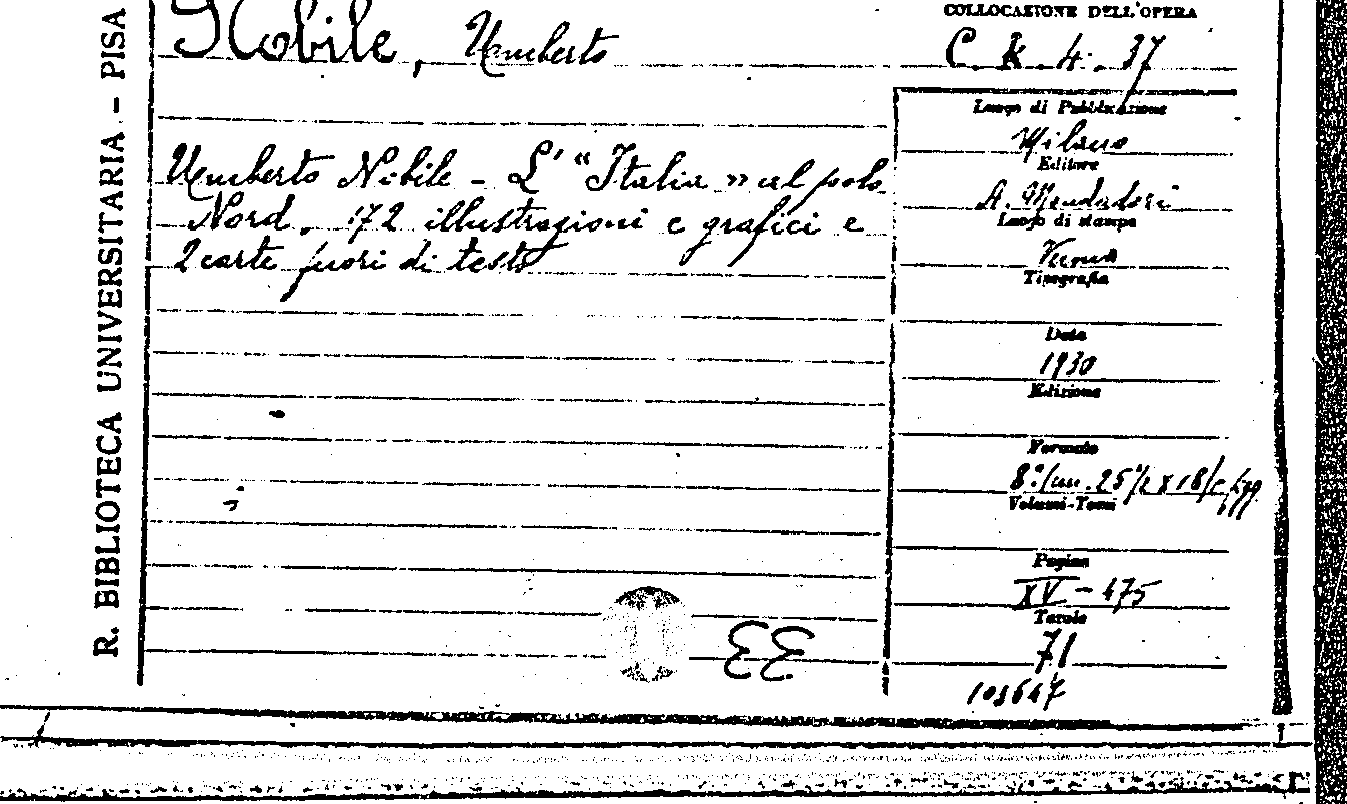 R. BIBLIOTECA UNIVERSITARIA - PISA
Nobile, Umberto
Umberto Nobile - L' "Italia" al polo
Nord, 172 illustrazioni e grafici e
2 carte fuori di testo
EE
COLLOCAZIONE DELL'OPERA
C. K. 4. 37
Luogo di Pubblicazione
Milano
Editore
A. Mondadori
Luogo di stampa
Verona
Tipografia
Data
1930
Edizione
Formato
8º/cm. 25 1/2 x 18/c. figg.
Volumi-Tomi
Pagine
XV - 475
Tavole
71
103647